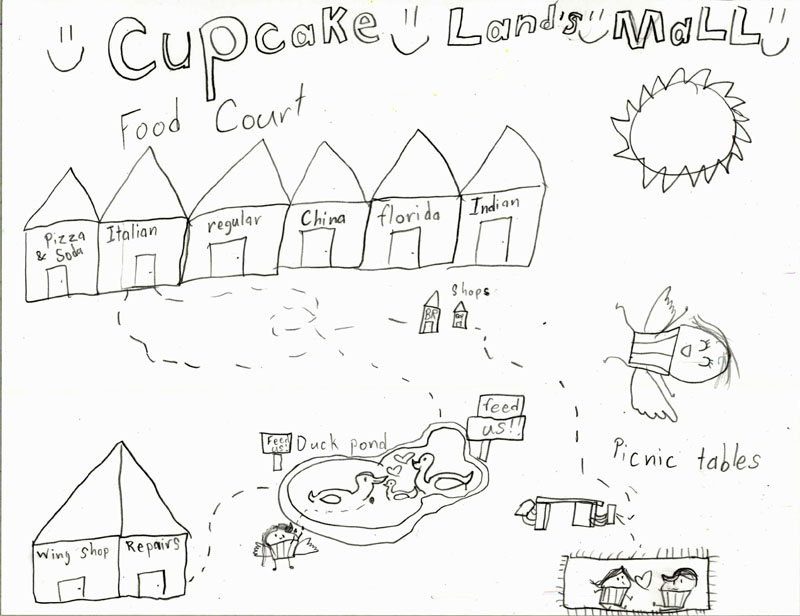 Cupcake Land's Mall
Food Court
Pizza
& Soda
Italian
regular
China
florida
Indian
Shops
BR
feed
us!!
Feed
us!
Duck pond
Picnic tables
Wing shop
Repairs